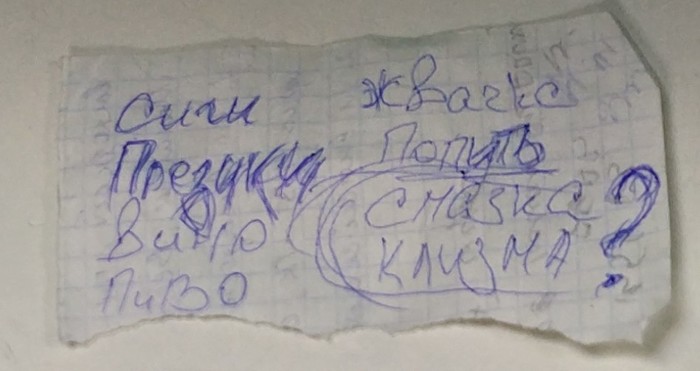 Сиги
Презики
Вино
Пиво
Жвачка
Попить
Смазка
Клизма ?